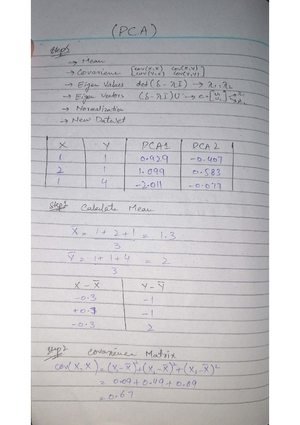 (PCA)
Steps
→ Mean
→ Covarience [cov(x,x) cov(x,y)
cov(y,x) cov(y,y)]
→ Eigen Values det(S-λI) → λ1, λ2
→ Eigen Vectors (S-λI)U
→ Normalization
→ New DataSet
X Y PCA1 PCA2
1 1 0.929 -0.407
2 1 1.099 0.583
1 4 -2.011 -0.077
Step1 Calculate Mean
X̄ = 1+2+1 = 1.3
3
Ȳ = 1+1+4 = 2
3
X-X̄ Y-Ȳ
-0.3 -1
+0.7 -1
-0.3 2
Step2 Covarience Matrix
cov(X,X) = (X1-X̄)²+(X2-X̄)²+(X3-X̄)²
= 0.09+0.49+0.09
= 0.67